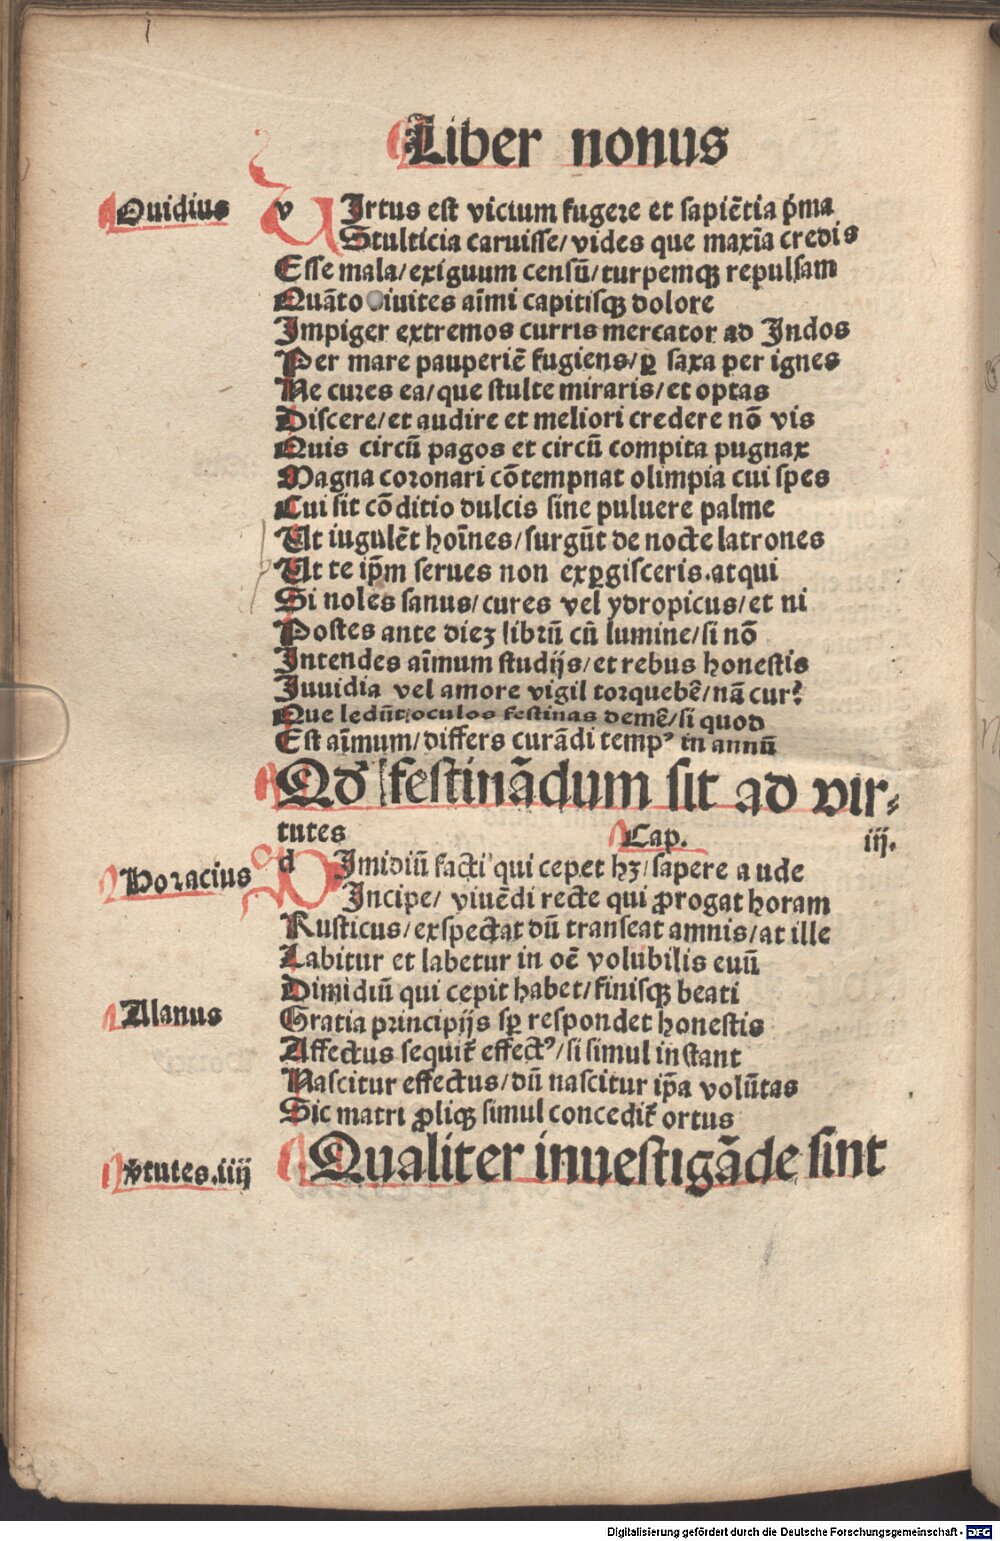 Liber nonus
Ouidius
vIrtus est vicium fugere et sapiētia pͥma
Stulticia caruisse/ vides que maxīa credis
Esse mala/ exiguum censū/ turpemqꝫ repulsam
Quāto diuites aīmi capitisqꝫ dolore
Impiger extremos curris mercator ad Indos
Per mare pauperiē fugiens/ ꝑ saxa per ignes
Ne cures ea/ que stulte miraris/ et optas
Discere/ et audire et meliori credere nō vis
Quis circū pagos et circū compita pugnax
Magna coronari cōtempnat olimpia cui spes
Cui sit cōditio dulcis sine puluere palme
Ut iugulēt hoīnes/ surgūt de nocte latrones
Ut te ip̄m serues non exꝑgisceris. atqui
Si noles sanus/ cures vel ydropicus/ et ni
Postes ante dieʒ librū cū lumine/ si nō
Intendes aīmum studijs/ et rebus honestis
Iuuidia vel amore vigil torquebē/ nā cur?
Que ledūt oculos festinas demē/ si quod
Est aīmum/ differs curādi tempꝰ in annū
Qd̓ festinādum sit ad vir⸗
tutes Cap. iij.
Horacius
dImidiū facti qui cepet hʒ/ sapere aude
Incipe/ viuēdi recte qui ꝓrogat horam
Rusticus/ exspectat dū transeat amnis/ at ille
Labitur et labetur in oē volubilis euū
Dimidiū qui cepit habet/ finisqꝫ beati
Alanus
Gratia principijs sꝑ respondet honestis
Affectus sequit᷑ effectꝰ/ si simul instant
Nascitur effectus/ dū nascitur ip̄a volūtas
Sic matri ꝓliqꝫ simul concedit᷑ ortus
v̓tutes. iiij
Qualiter inuestigāde sint
Digitalisierung gefördert durch die Deutsche Forschungsgemeinschaft - DFG